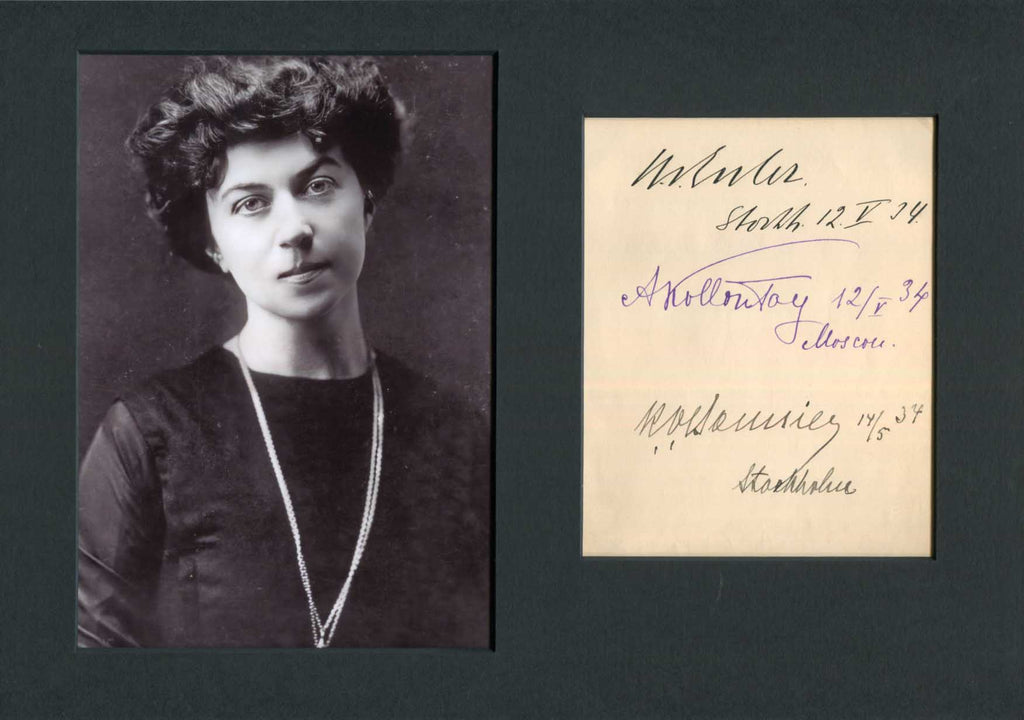 Stockh. 12. V 34.
AKollontay 12/V 34
Moscou.
14/5 34
Stockholm